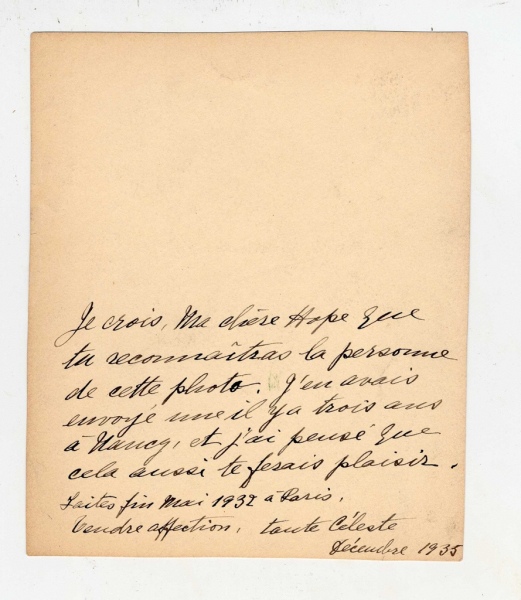 Je crois, Ma chère Hope que
tu reconnaîtras la personne
de cette photo. J'en avais
envoyé une il y a trois ans
à Nancy, et j'ai pensé que
cela aussi te ferais plaisir.
Faites fin Mai 1932 à Paris.
Tendre affection, tante Céleste
Décembre 1935